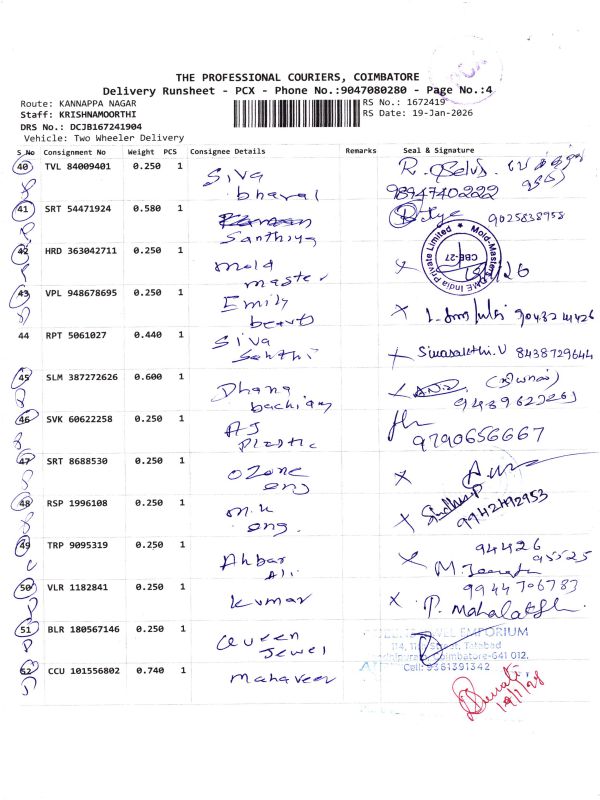 THE PROFESSIONAL COURIERS, COIMBATORE
Delivery Runsheet - PCX - Phone No.:9047080280 - Page No.:4
Route: KANNAPPA NAGAR
RS No.: 1672419
Staff: KRISHNAMOORTHI
RS Date: 19-Jan-2026
DRS No.: DCJB167241904
Vehicle: Two Wheeler Delivery
S No Consignment No Weight PCS Consignee Details Remarks Seal & Signature
40 TVL 84009401 0.250 1 Siva
bharal
9894740222
41 SRT 54471924 0.580 1
Santhiya
9025838958
42 HRD 363042711 0.250 1 mold
master
Mold-Masters India Private Limited
CBE-27
43 VPL 948678695 0.250 1 Emily
beart
9043214426
44 RPT 5061027 0.440 1 Siva
Sakthi
Sivasakthi.V 8438729644
45 SLM 387272626 0.600 1 Dhana
bachiam
46 SVK 60622258 0.250 1 AJ
Plastic
9790656667
47 SRT 8688530 0.250 1 Ozone
eng
48 RSP 1996108 0.250 1 m.k
eng.
Sindhu.P
9942492953
49 TRP 9095319 0.250 1 Akbar
Ali
94426
95525
50 VLR 1182841 0.250 1 Kumar
9944706783
P. Mahalakshmi
51 BLR 180567146 0.250 1 Queen
Jewel
JEWEL EMPORIUM
Tatabad
Coimbatore-641 012.
Cell: 9361391342
52 CCU 101556802 0.740 1 Mahaveer